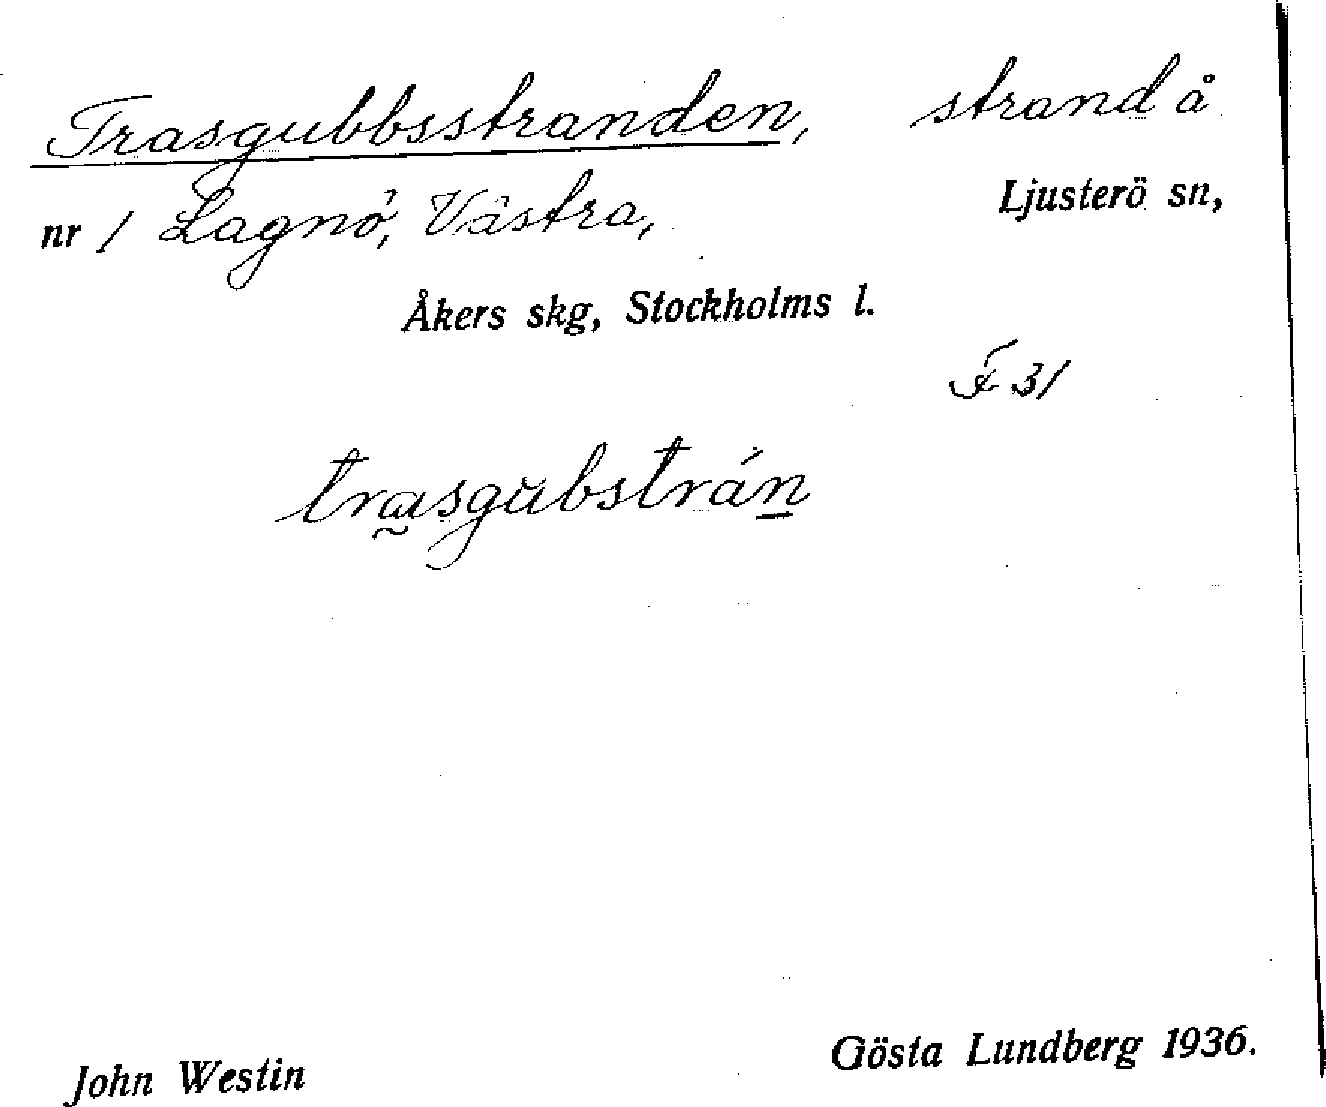 Trasgubbsstranden, strand å
nr 1 Lagnö, Västra, Ljusterö sn,
Åkers skg, Stockholms l.
F 31
trasgubstrán
John Westin Gösta Lundberg 1936.